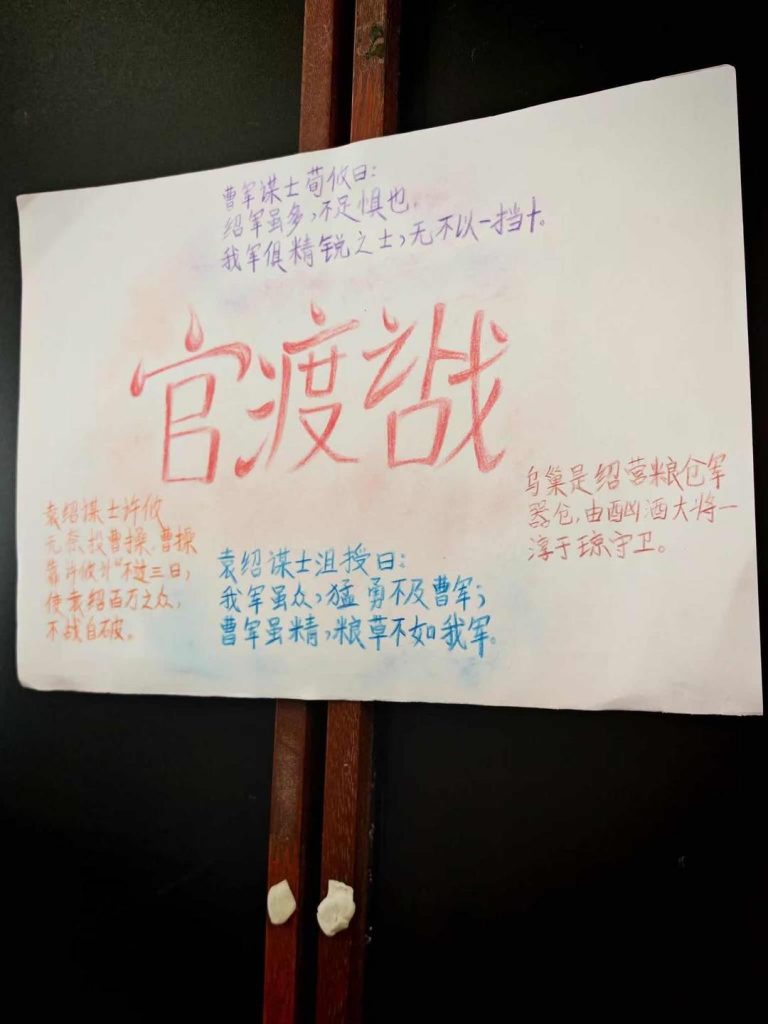 曹军谋士荀攸曰:
绍军虽多,不足惧也.
我军俱精锐之士,无不以一挡十。
官渡之战
乌巢是绍营粮仓军
器仓,由酗酒大将一
淳于琼守卫。
袁绍谋士许攸
无奈投曹操,曹操
靠许攸计"不过三日,
使袁绍百万之众,
不战自破。
袁绍谋士沮授曰:
我军虽众,猛勇不及曹军;
曹军虽精,粮草不如我军。